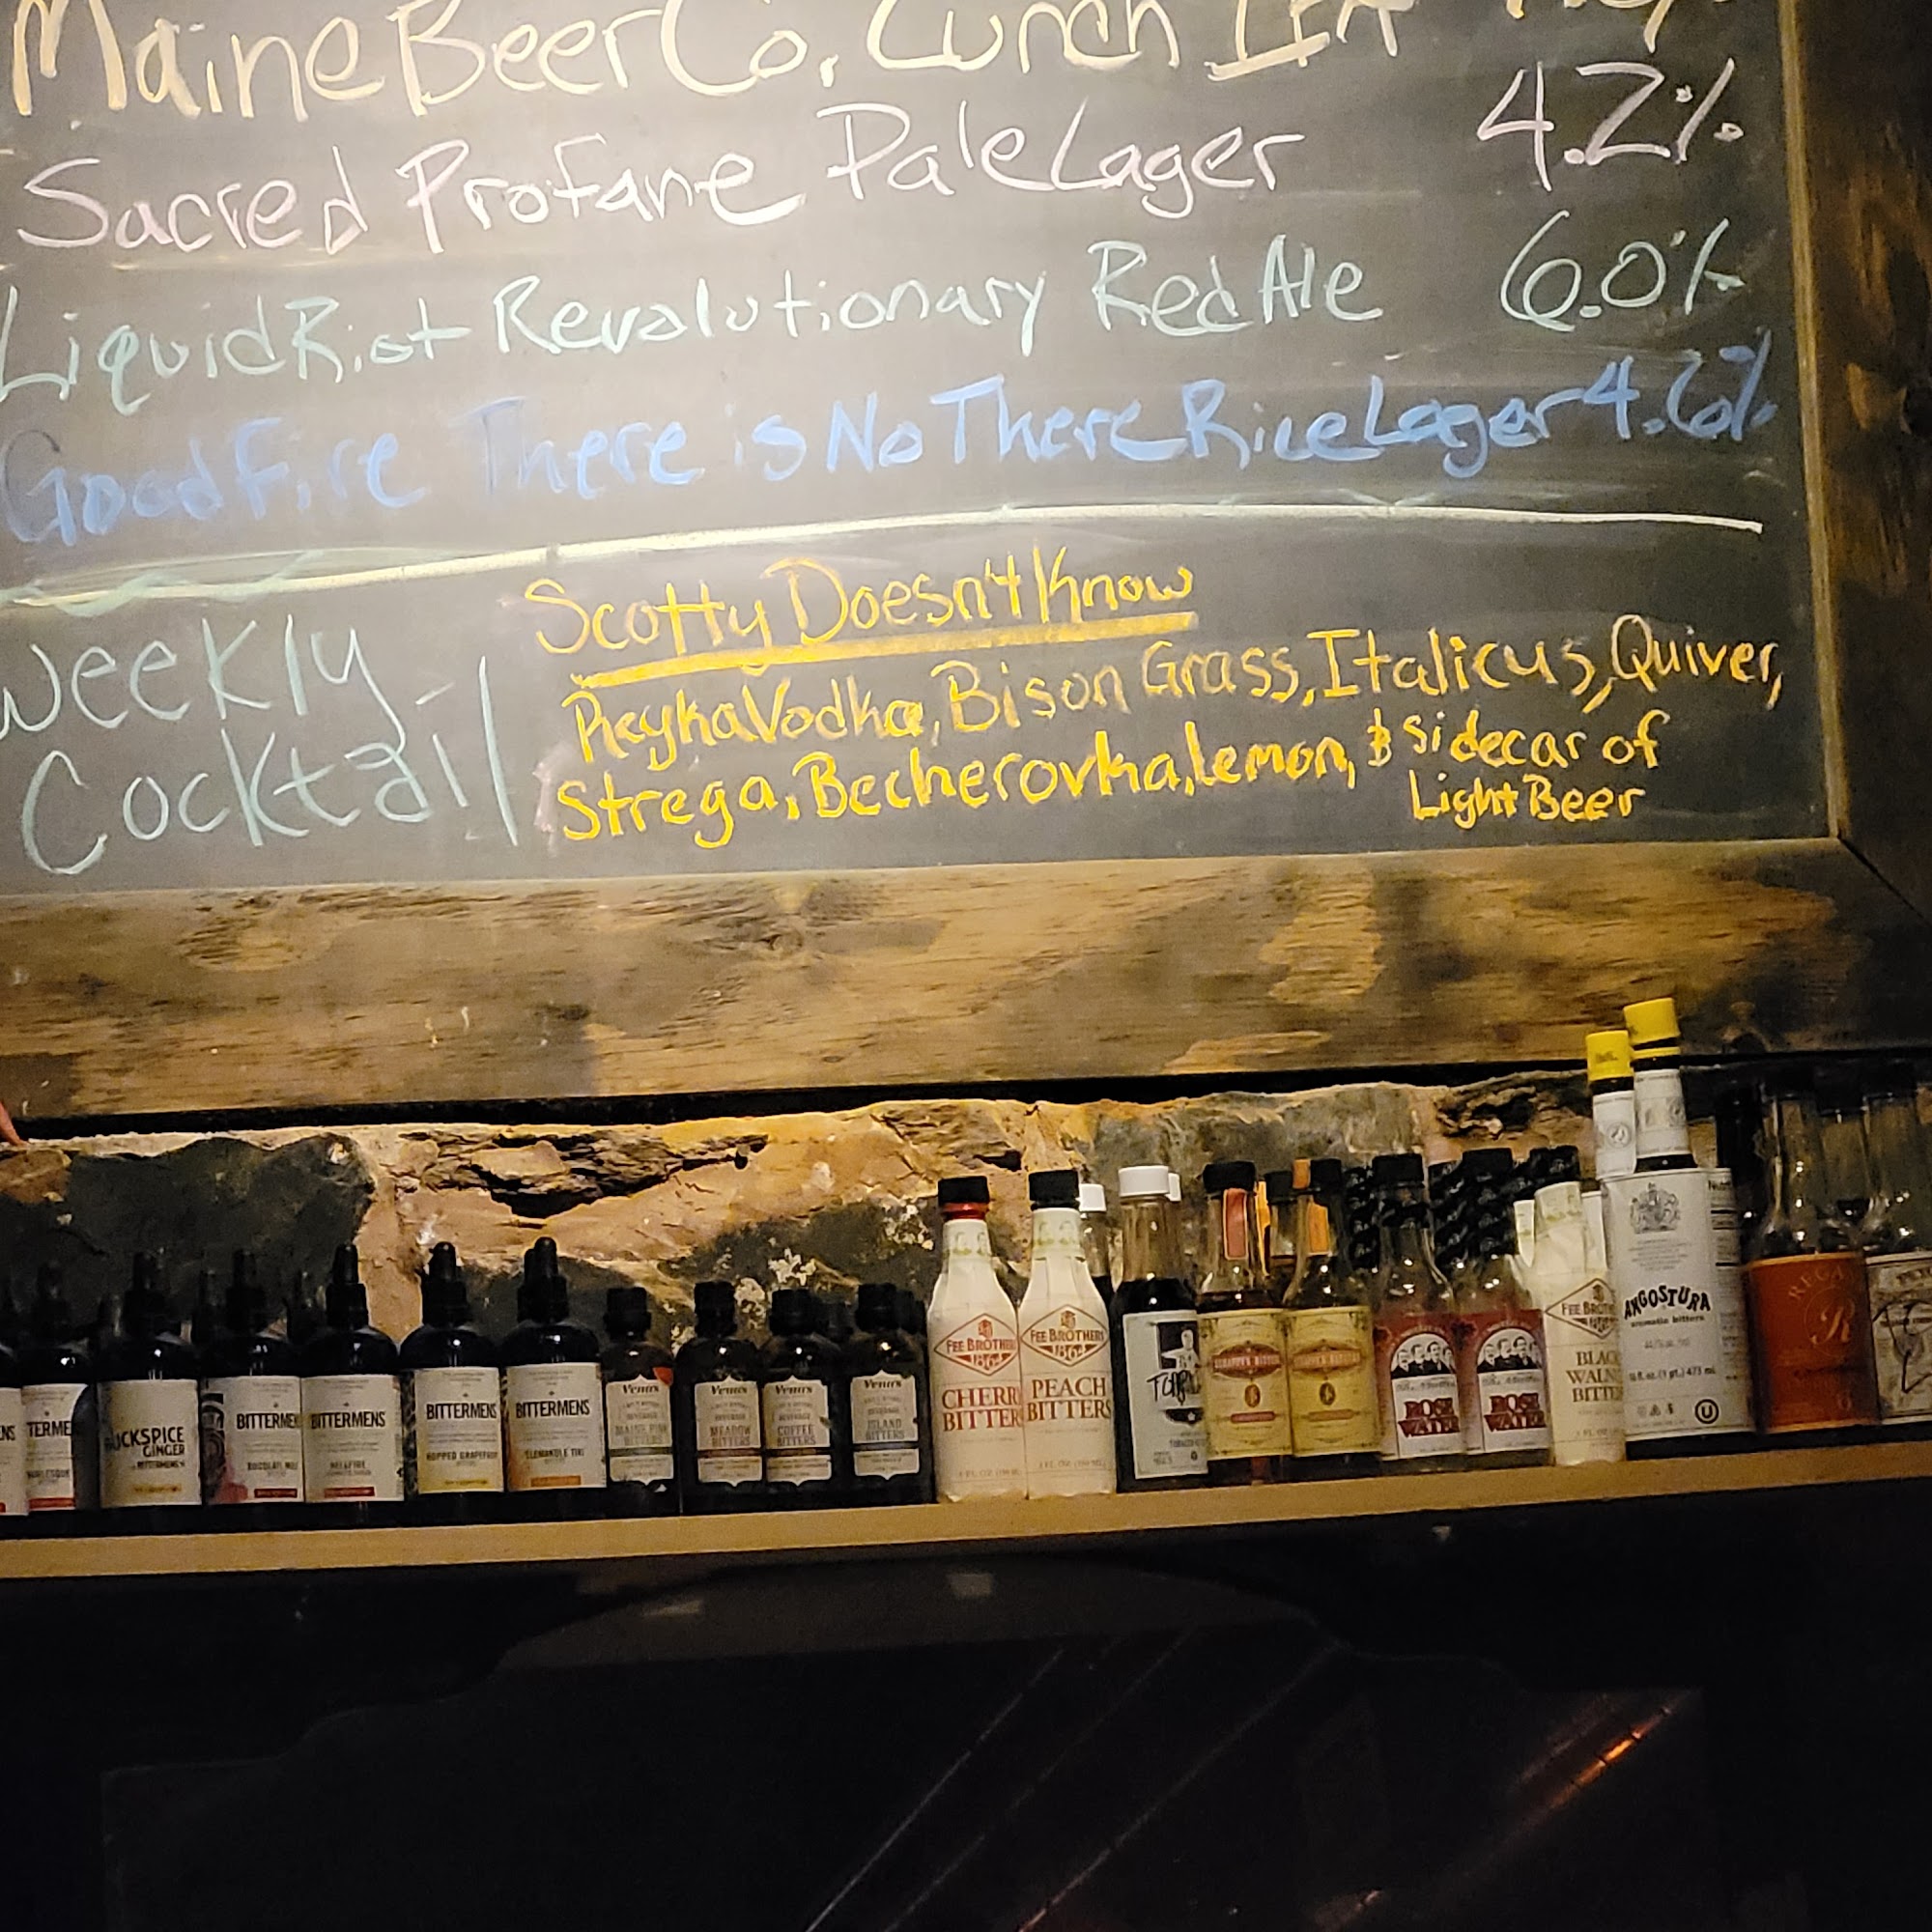 Maine Beer Co. Lunch IPA
Sacred Profane Pale Lager 4.2%
Liquid Riot Revolutionary Red Ale 6.0%
Goodfire There is No There Rice Lager 4.6%
Weekly Cocktail
Scotty Doesn't Know
Reyka Vodka, Bison Grass, Italicus, Quiver,
Strega, Becherovka, lemon, & sidecar of
Light Beer
GINGER
BITTERMENS
BITTERMENS
HELLFIRE
BITTERMENS
HOPPED GRAPEFRUIT
BITTERMENS
ELEMAKULE TIKI
Venus
BITTERS
Venus
MEADOW
BITTERS
Venus
COFFEE
BITTERS
Venus
ISLAND
BITTERS
FEE BROTHERS
1864
CHERRY
BITTERS
FEE BROTHERS
1864
PEACH
BITTERS
ROSE
WATER
ROSE
WATER
FEE BROTHERS
BLACK
WALNUT
BITTERS
ANGOSTURA
aromatic bitters
16 fl. oz. (1 pt.) 473 ml
R